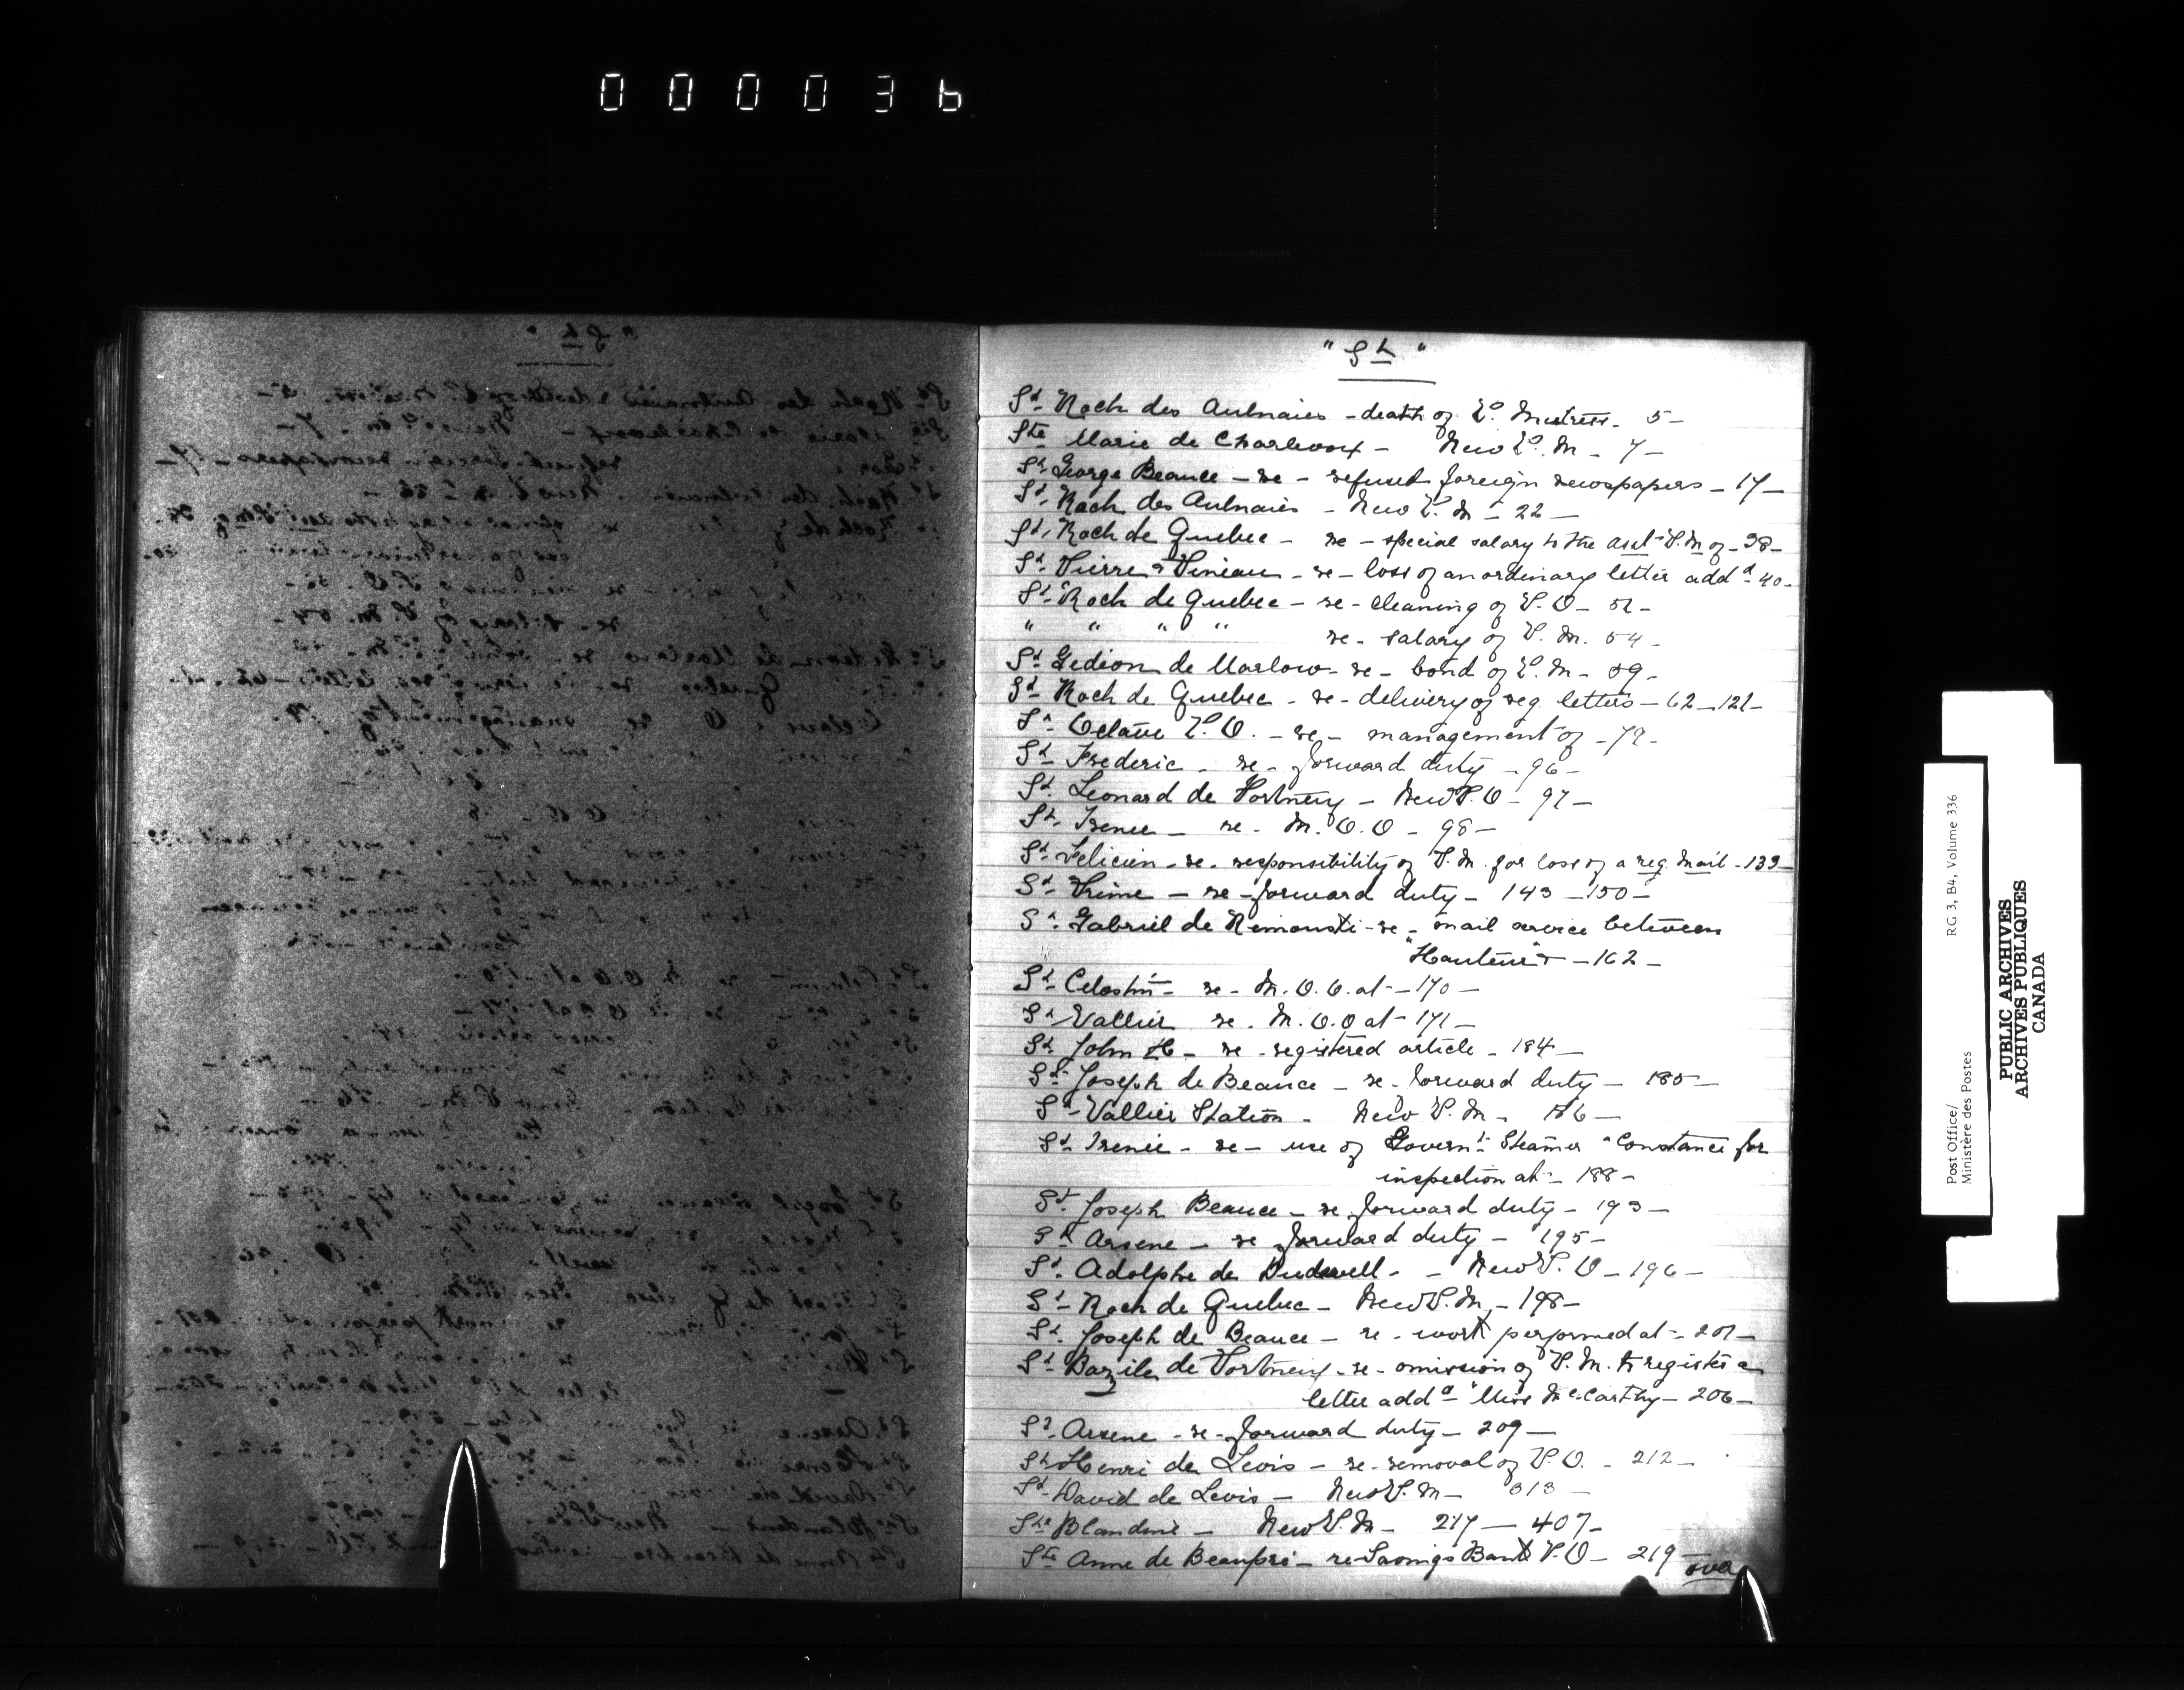 000036
"St"
St Roch des Aulnaies - death of P. Mistress - 5 -
Ste Marie de Charlevoix - New P. M - 7 -
St George Beauce - re - refused foreign newspapers - 17 -
St Roch des Aulnaies - New P. M - 22 -
St Roch de Quebec - re - special salary to the asst P. M of - 38 -
St Pierre - re - loss of an ordinary letter addd 40 -
St Roch de Quebec - re - cleaning of P. O - 51 -
" " " " re - salary of P. M. 54 -
St Gedion de Marlow - re - bond of P. M - 59 -
St Roch de Quebec - re - delivery of reg. letters - 62 - 121 -
St Octave P. O. - re - management of - 79 -
St Frederic - re - forward duty - 96 -
St Leonard de Portneuf - New P. O - 97 -
St Irenee - re - M. O. O - 98 -
St Felicien - re - responsibility of P. M. for loss of a reg. mail - 139 -
St Prime - re - forward duty - 143 - 150 -
St Gabriel de Rimouski - re - mail service between
- 162 -
St Celestin - re - M. O. O. at - 170 -
St Vallier re - M. O. O at - 171 -
St John - re - registered article - 184 -
St Joseph de Beauce - re - forward duty - 185 -
St Vallier Station - New P. M - 186 -
St Irenée - re - use of Governt Steamer "Constance for
inspection at - 188 -
St Joseph Beauce - re forward duty - 193 -
St Arsene - re forward duty - 195 -
St Adolphe de Dudswell - - New P. O - 196 -
St Roch de Quebec - New P. M - 198 -
St Joseph de Beauce - re - work performed at - 201 -
St Bazile de Portneuf - re - omission of P. M. to register a
letter addd "Miss McCarthy - 206 -
St Arsene - re - forward duty - 209 -
St Henri de Levis - re - removal of P. O. - 212 -
St David de Levis - New P. M - 313 -
Ste Blandine - New P. M - 217 - 407 -
Ste Anne de Beaupré - re Savings Bank P. O - 219 -
over
Post Office/
Ministère des Postes
RG 3, B4, Volume 336
PUBLIC ARCHIVES
ARCHIVES PUBLIQUES
CANADA